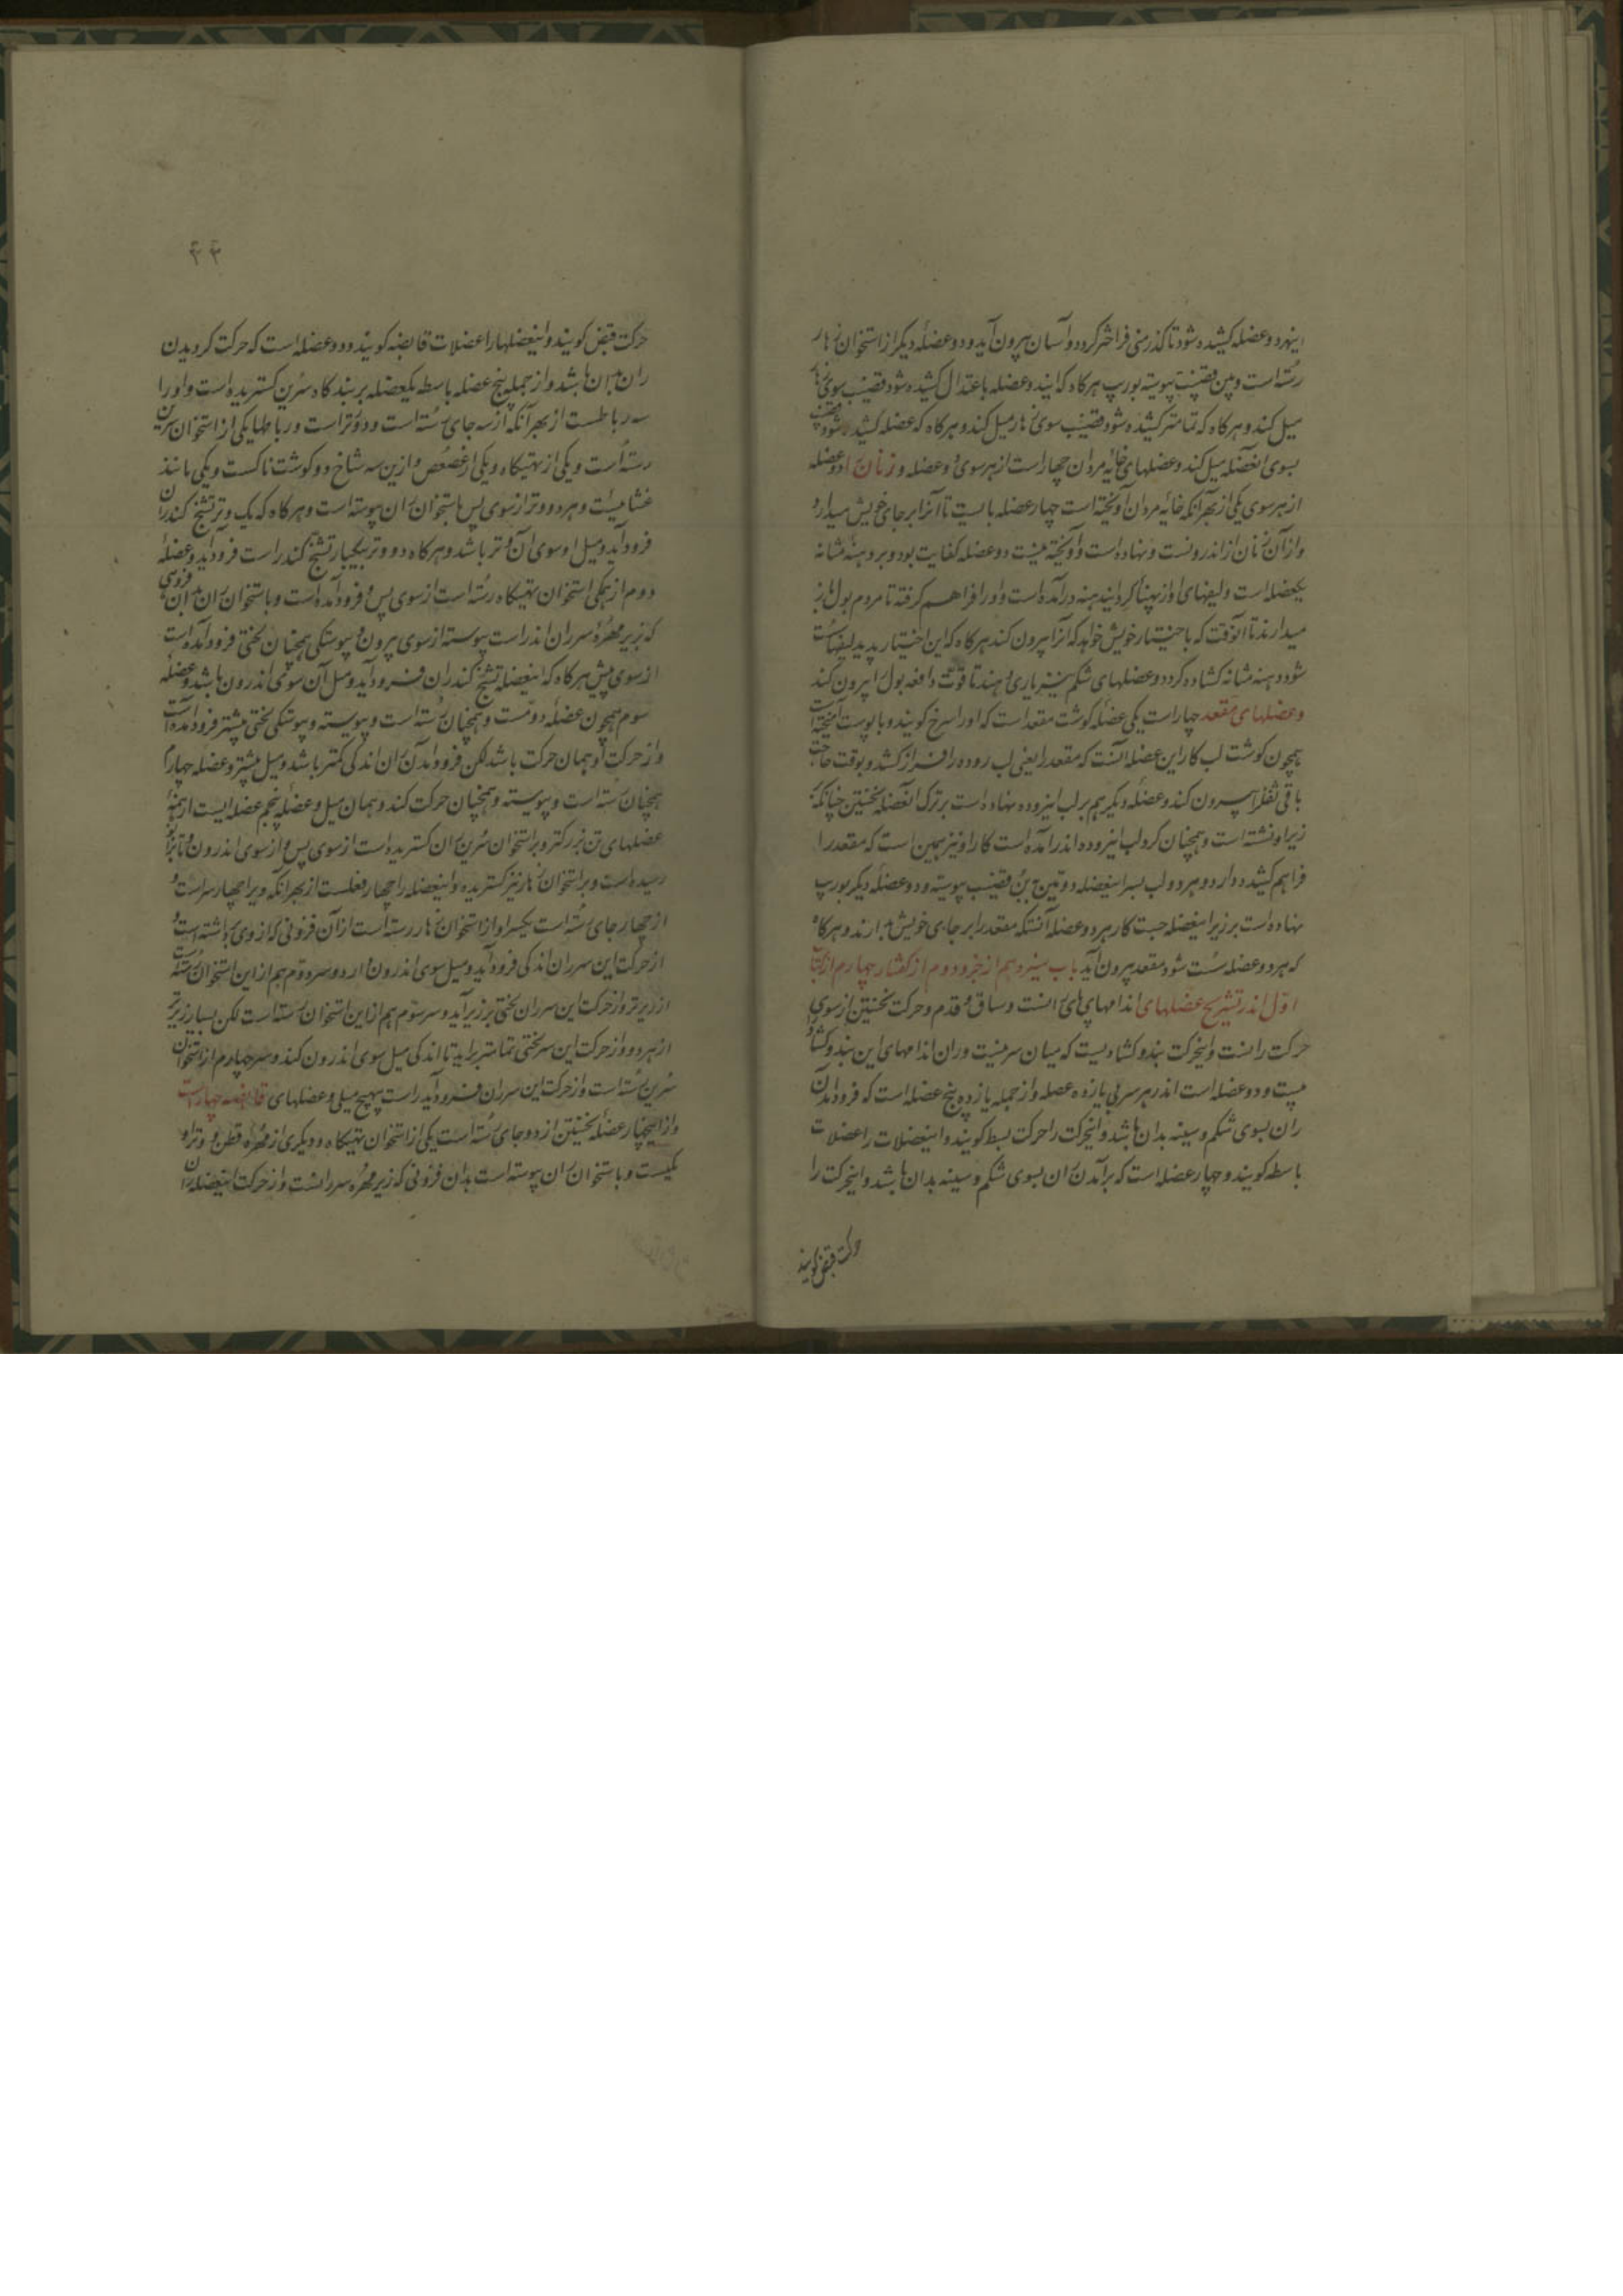 اینهر دو عضله کشیده شود تا کذر منی فراختر کردد و آسان بیرون آید و دو عضله دیکر از استخوان زهار
رسته است و ببن قضیب پیوسته بورب هرکاه که ایندو عضله باعتدال کشیده شود قضیب سوی زهار
میل کند و هرکاه که تمامتر کشیده شود قضیب سوی زهار میل کند و هرکاه که عضله کشیده شود قضیب
بسوی انعضله میل کند و عضلهای خایه مردان چهار است از هر سوی دو عضله و زنان را دو عضله
از هر سوی یکی از بهر آنکه خایه مردان آویخته است چهار عضله بایست تا آنرا بر جای خویش میدارد
و از آن زنان از اندرونست و نهاده است و آویخته نیست دو عضله کفایت بود و بر دهنه مثانه
یکعضله است و لیفهای او از پهنا کرد ایندهنه در آمده است و اورا فراهم کرفته تا مردم بول باز
میدارند تا انوقت که باختیار خویش خواهد که آنرا بیرون کند هرکاه که این اختیار پدید لیفها سست
شود و دهنه مثانه کشاده کردد و عضلهای شکم نیز یاری دهند تا قوت دافعه بول را بیرون کند
و عضلهای مقعد چهار است یکی عضله کوشت مقعد است که اورا سرخ کویند و با پوست آمیخته است
همچون کوشت لب کار این عضله آنست که مقعد را یعنی لب روده را فراز کشد و بوقت حاجت
باقی ثفل را بیرون کند و عضله دیکر هم بر لب اینروده نهاده است برترک انعضله نخستین چنانکه
زیر او نشسته است و همچنان کرد لب اینروده اندر آمده است کار او نیز همین است که مقعد را
فراهم کشیده دارد و هر دو لب بسر اینعضله دومین ببن قضیب پیوسته و دو عضله دیکر بورب
نهاده است بر زبر اینعضله جست کار هر دو عضله آنستکه مقعد را بر جای خویش بدارند و هرکاه
که هر دو عضله سست شود مقعد بیرون آید باب سیزدهم از جزو دوم از کفتار چهارم از کتاب
اول اندر تشریح عضلهای اندامهای پای رانست و ساق و قدم و حرکت نخستین از سوی
حرکت رانست و اینحرکت بند و کشادیست که میان سرینست و ران اندامهای این بند و کشاد
بیست و دو عضله است اندر هر سرینی یازده عضله و از جمله یازده پنج عضله است که فرود آمدن
ران بسوی شکم و سینه بدان باشد و اینحرکت را حرکت بسط کویند و اینعضلات را عضلات
باسطه کویند و چهار عضله است که برآمدن ران بسوی شکم و سینه بدان باشد و اینحرکت را
حرکت قبض کویند
۳۳
حرکت قبض کویند و اینعضلهارا عضلات قابضه کویند و دو عضله است که حرکت کردیدن
ران بدان باشد و از جمله پنج عضله باسطه یکعضله بر بندکاه سرین کستریده است و اورا
سه رباطست از بهر آنکه از سه جای رسته است و دو وتر است و رباطها یکی از استخوان سرین
رسته است و یکی از تهیکاه و یکی از عصعص و ازین سه شاخ دو کوشتناکست و یکی مانند
غشائیست و هر دو وتر از سوی پس باستخوان ران پیوسته است و هرکاه که یک وتر تشنج کند ران
فرود آید و میل او سوی آن وتر باشد و هرکاه دو وتر بیکبار تشنج کند راست فرود آید و عضله
دوم از همکی استخوان تهیکاه رسته است از سوی پس و فرود آمده است و باستخوان ران بدان فزونی
که زیر مهره سر ران اندر است پیوسته از سوی بیرون و پیوستکی همچنان لختی فرود آمده است
از سوی پیش هرکاه که اینعضله تشنج کند ران فرود آید و میل آن سوی اندرون باشد و عضله
سوم همچون عضله دومست و همچنان رسته است و پیوسته و پیوستکی لختی بیشتر فرود آمده است
و از حرکت او همان حرکت باشد لکن فرود آمدن ران اندکی کمتر باشد و میل بیشتر و عضله چهارم
همچنان رسته است و پیوسته و همچنان حرکت کند و همان میل و عضله پنجم عضله ایست از همه
عضلهای تن بزرکتر و بر استخوان سرین و ران کستریده است از سوی پس و از سوی اندرون و تا بزانو
رسیده است و بر استخوان زهار نیز کستریده و اینعضله را چهار فعلست از بهر آنکه ویرا چهار سر است و
از چهار جای رسته است یکسر او از استخوان زهار رسته است از آن فزونی که از وی برداشته است و
از حرکت این سر ران اندکی فرود آید و میل سوی اندرون دارد و سر دوم هم از این استخوان رسته است
از زیرتر و از حرکت این سر ران لختی بر زبر آید و سر سوم هم از این استخوان رسته است لکن بسیار زیرتر
از هر دو و از حرکت این سر لختی تمامتر براید تا اندکی میل سوی اندرون کند و سر چهارم از استخوان
سرین رسته است و از حرکت این سر ران فرود آید راست بهیچ میلی و عضلهای قابضه چهار است
و از اینچهار عضله نخستین از دو جای رسته است یکی از استخوان تهیکاه و دیکری از مهره قطن و وتر او
یکیست و باستخوان ران پیوسته است بدان فزونی که زیر مهره سر رانست و از حرکت اینعضله ران